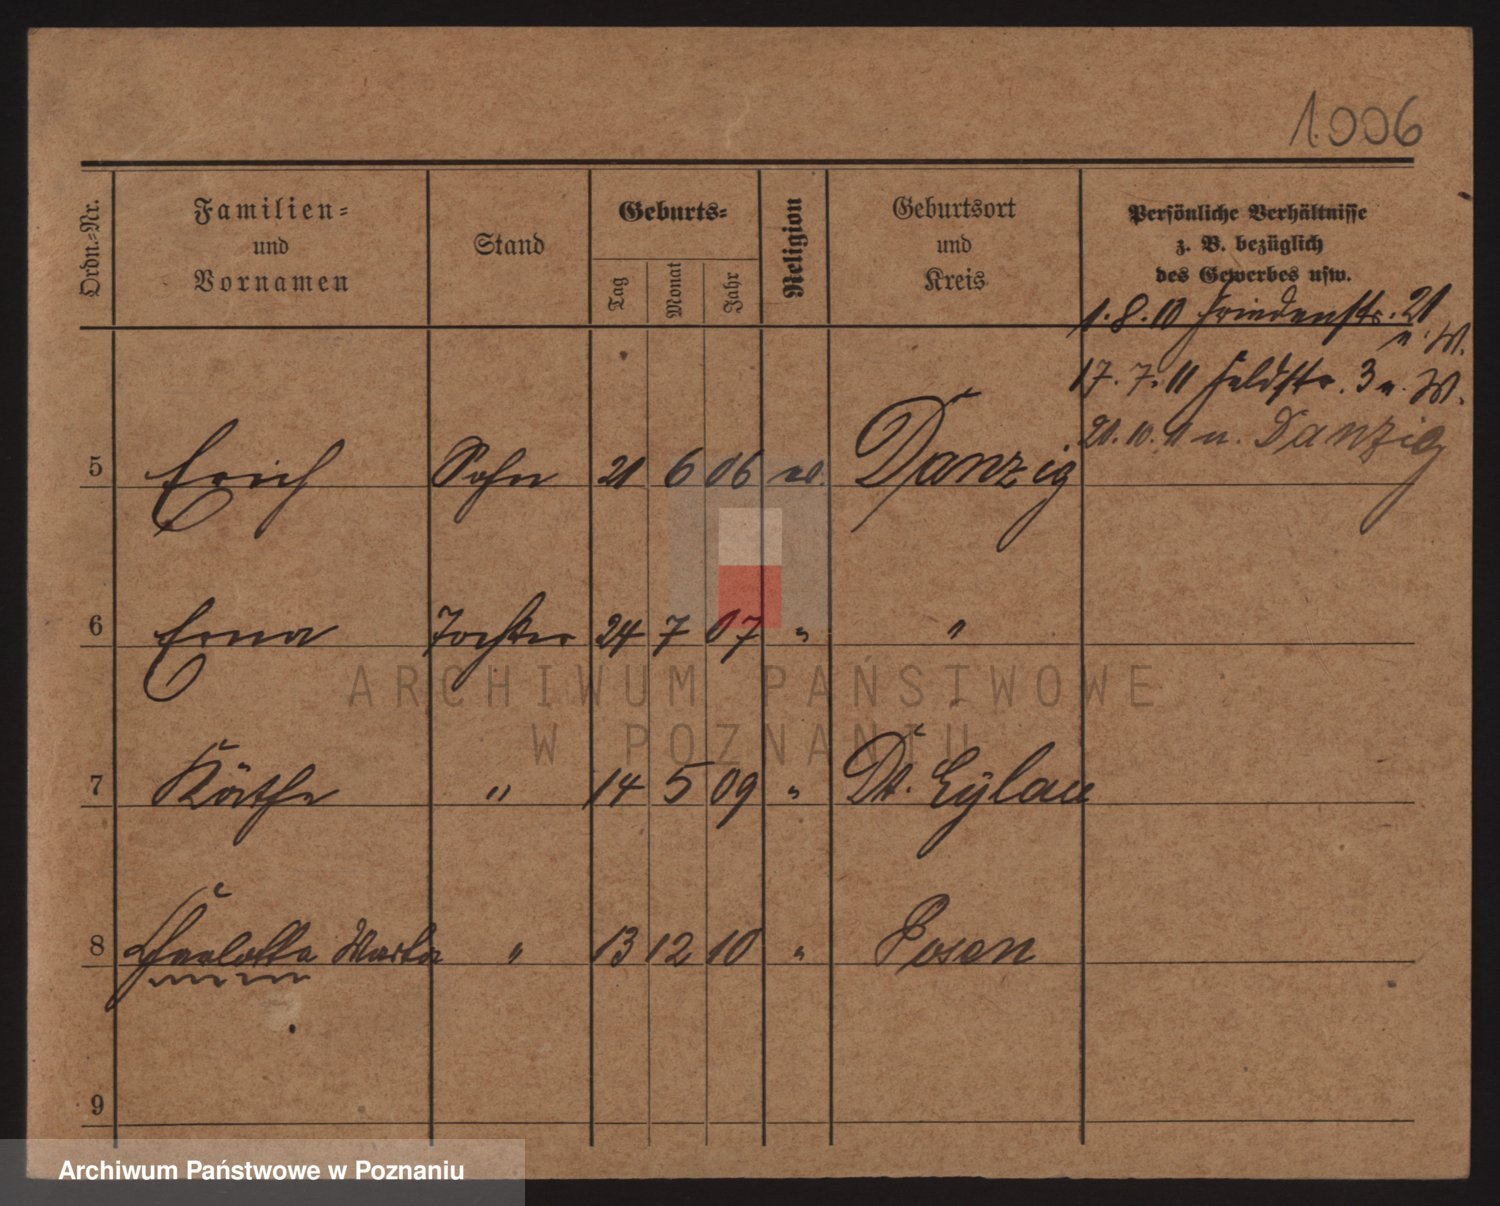 1006
Ordn.-Nr.
Familien-
und
Vornamen
Stand
Geburts-
Tag
Monat
Jahr
Religion
Geburtsort
und
Kreis
Persönliche Verhältnisse
z. B. bezüglich
des Gewerbes usw.
1.8.10 Friedenstr. 21
n. W.
17.7.11 Feldstr. 3 n. W.
21.10.11 n. Danzig
5 Erich Sohn 21 6 06 Danzig
6 Erna Tochter 24 7 07 " "
7 Käthe " 14 5 09 " Dt. Eylau
8 Charlotte Martha " 13 12 10 " Posen
9
ARCHIWUM PAŃSTWOWE
W POZNANIU
Archiwum Państwowe w Poznaniu